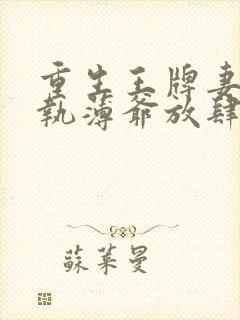 重生王牌妻
執薄爺放肆
蘇萊曼